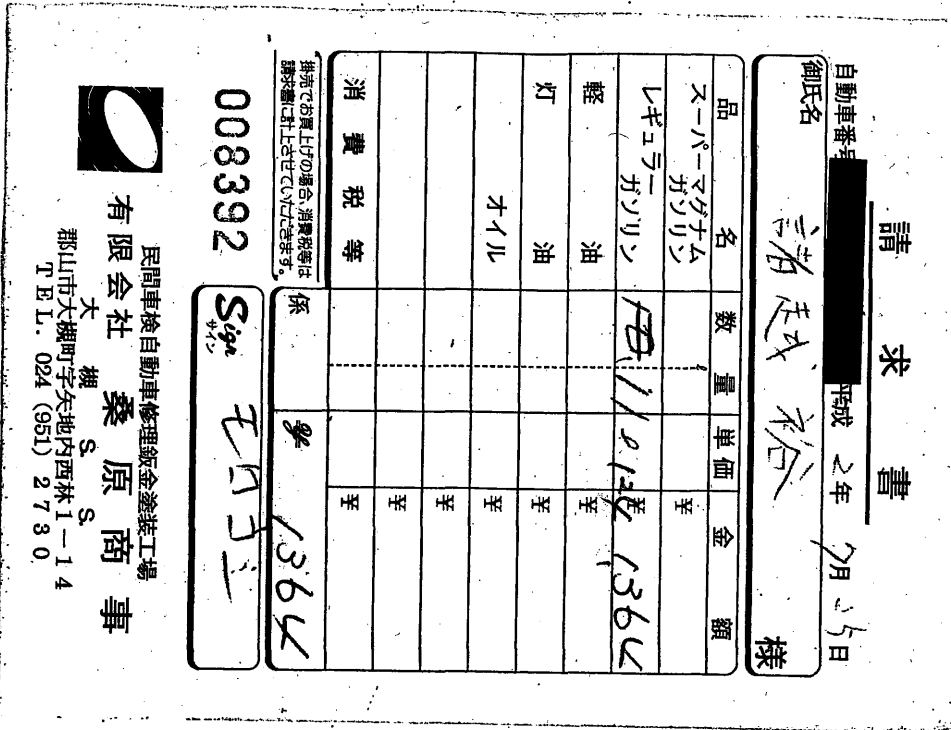 請求書
自動車番号
平成 2年 7月25日
御氏名 諸越 裕 様
品名 数量 単価 金額
スーパーマグナムガソリン ¥
レギュラーガソリン 11.0 124 ¥1364
軽油 ¥
灯油 ¥
オイル ¥
¥
¥
消費税等 ¥
掛売でお買上げの場合、消費税等は
請求書に計上させていただきます。
係 1364
008392
Sign サイン モロコシ
民間車検自動車修理鈑金塗装工場
有限会社 桑原商事
大槻 S S.
郡山市大槻町字矢地内西林1-14
TEL. 024(951)2730